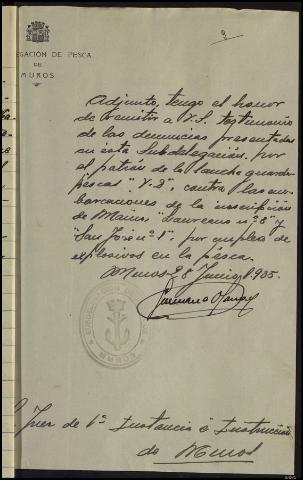 EGACIÓN DE PESCA
DE
MUROS
Adjunto, tengo el honor
de remitir a V.S. testimonio
de las denuncias presentadas
en esta Subdelegación, por
el patrón de la lancha guarda
pescas "V-2", contra las em-
barcaciones de la inscripción
de Muros "Laureano nº 8" y
"San José nº 1", por empleo de
explosivos en la pesca.
Muros 28 Junio 1935.
MUROS
Juez de 1ª Instancia é Instrucción
de Muros